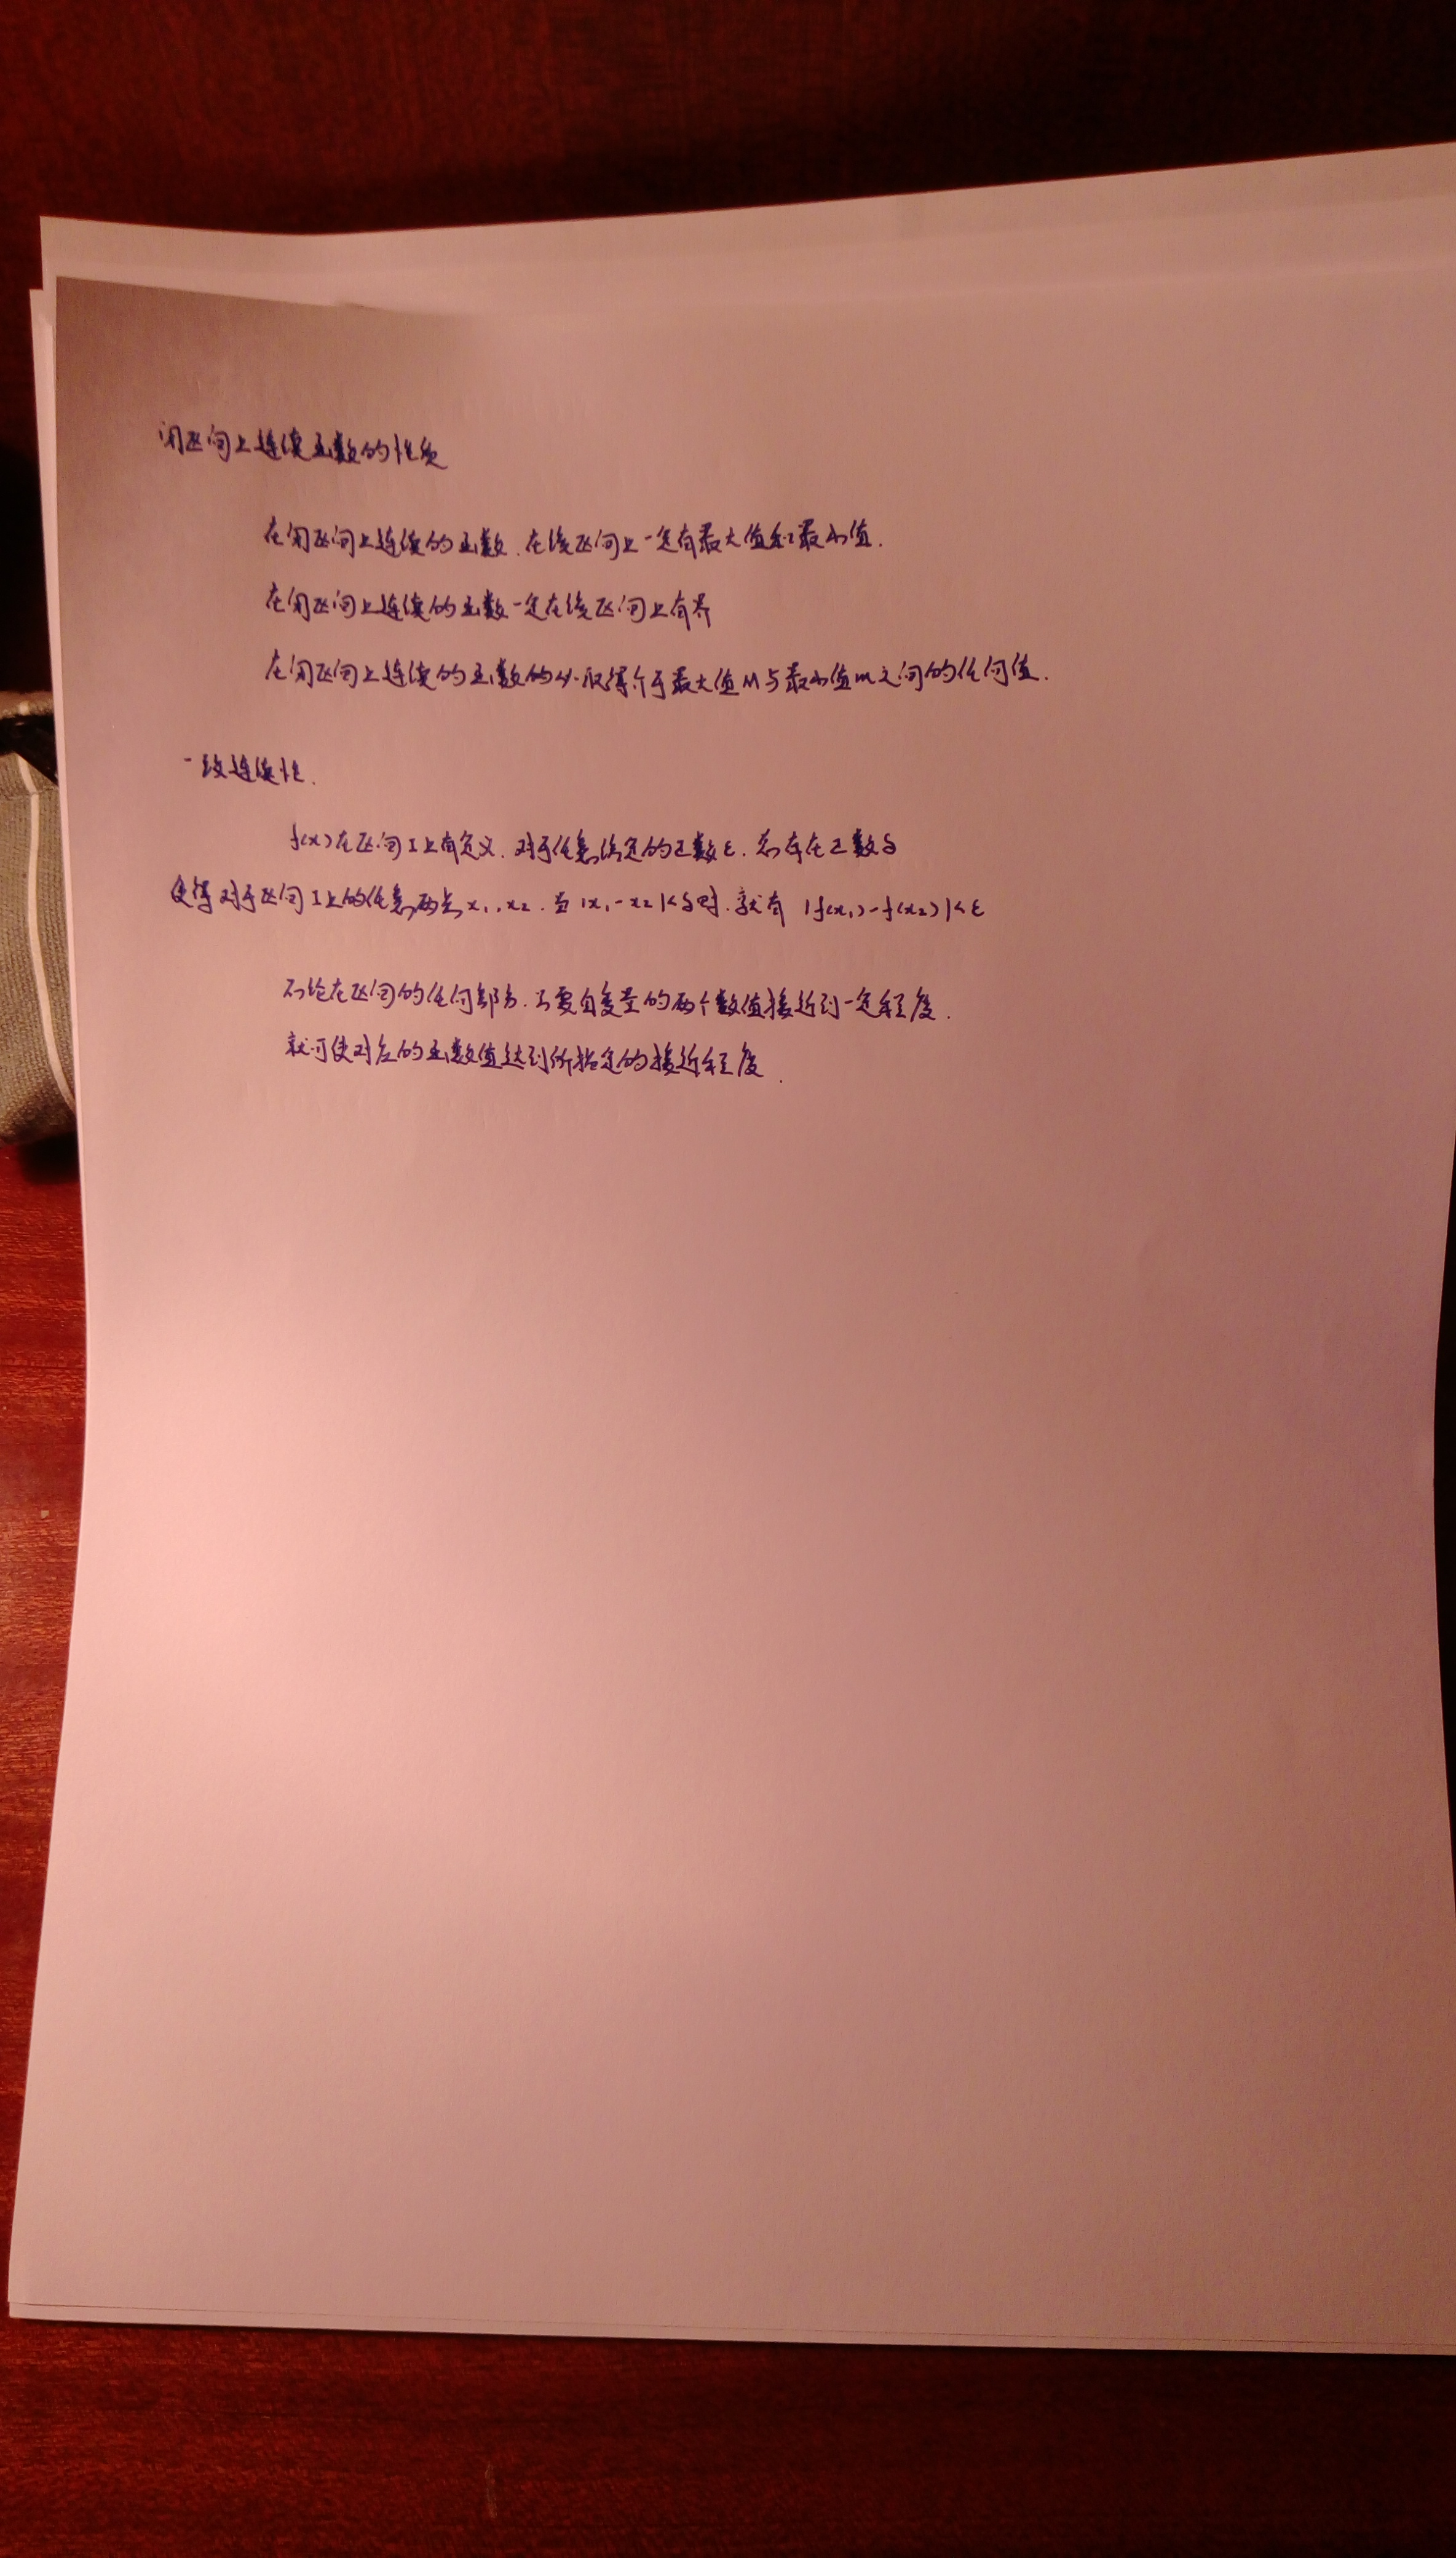 闭区间上连续函数的性质
在闭区间上连续的函数.在该区间上一定有最大值和最小值.
在闭区间上连续的函数一定在该区间上有界
在闭区间上连续的函数的必取得介于最大值M与最小值m之间的任何值.
一致连续性.
f(x)在区间I上有定义.对于任意给定的正数ε.总存在正数δ
使得对于区间I上的任意两点x₁,x₂.当|x₁-x₂|<δ时.就有 |f(x₁)-f(x₂)|<ε
不论在区间的任何部分.只要自变量的两个数值接近到一定程度.
就可使对应的函数值达到所指定的接近程度.